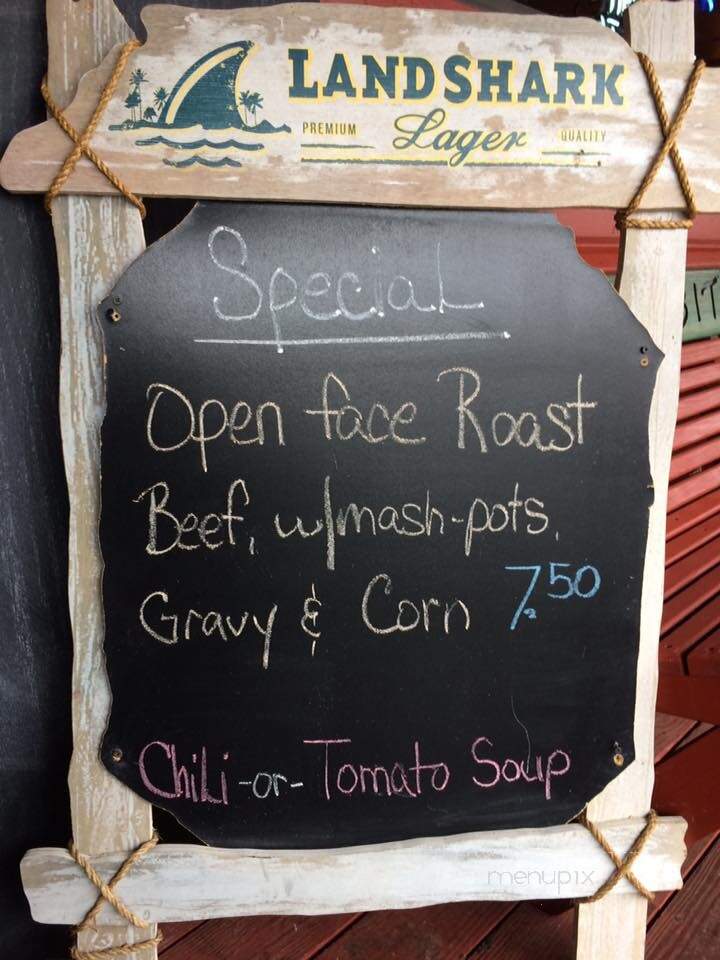 LANDSHARK
PREMIUM Lager QUALITY
Special
Open face Roast
Beef, w/mash-pots,
Gravy & Corn 7.50
Chili -or- Tomato Soup
menupix